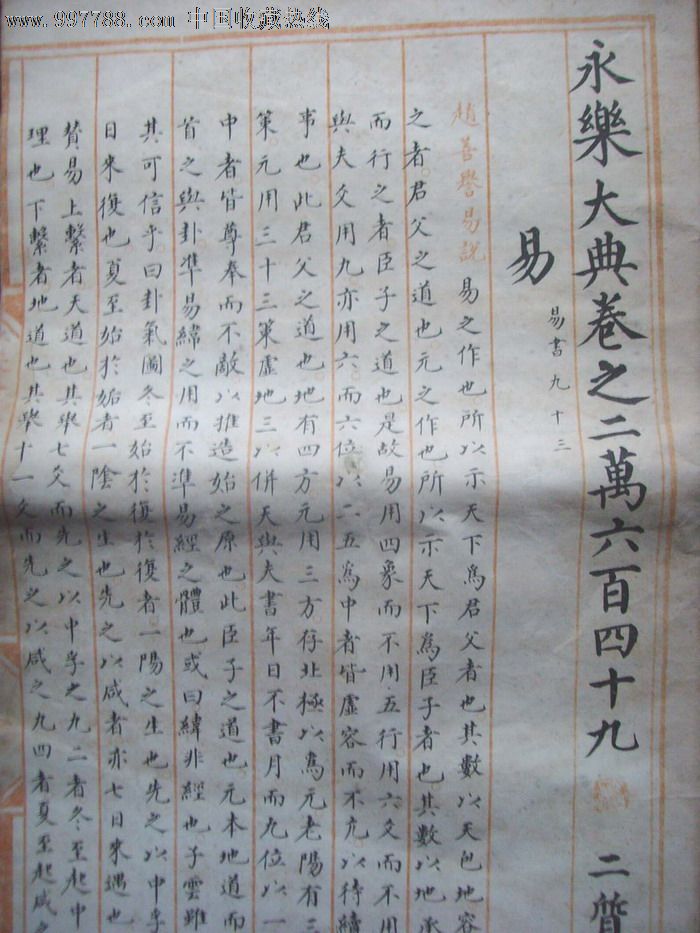 www.997788.com 中国收藏热线
永樂大典卷之二萬六百四十九 二質
易 易書九十三
趙善譽易説 易之作也所以示天下爲君父者也其數以天包地容
之者君父之道也元之作也所以示天下爲臣子者也其數以地承
而行之者臣子之道也是故易用四象而不用五行用六爻而不用
與夫爻用九亦用六而六位以二五爲中者皆虛容而不充以待續
事也此君父之道也地有四方元用三方存北極以爲元老陽有三
策元用三十三策虛地三以併天與夫書年日不書月而九位以一
中者皆尊奉而不敵以推造始之原也此臣子之道也元本地道而
首之與卦準易緯之用而不準易經之體也或曰緯非經也子雲雖
其可信乎曰卦氣圖冬至始於復於復者一陽之生也先之以中孚
日來復也夏至始於姤者一陰之生也先之以咸者亦七日來遇也
賛易上繫者天道也其舉七爻而先之以中孚之九二者冬至起中
理也下繫者地道也其舉十一爻而先之以咸之九四者夏至起咸之